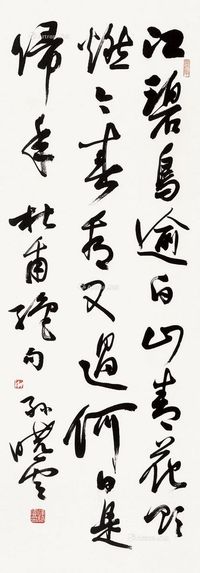 江碧鳥逾白山青花欲
燃今春看又過何日是
歸年杜甫絕句孙晓云